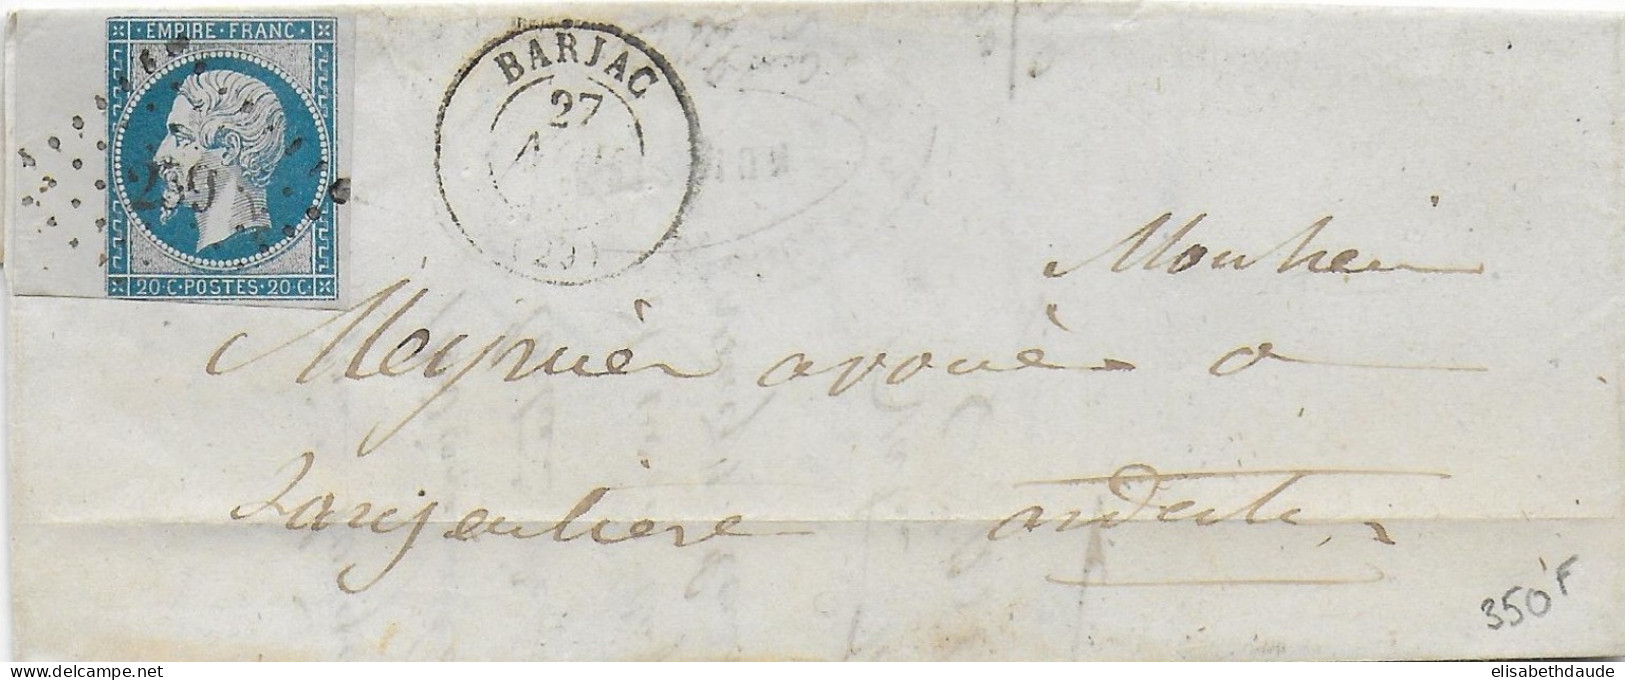 EMPIRE · FRANC ·
239
20 · C · POSTES · 20 · C ·
BARJAC
27
(29)
Monsieur
Meynier avoué a
Largentiere ardèche
350F
elisabethdaude